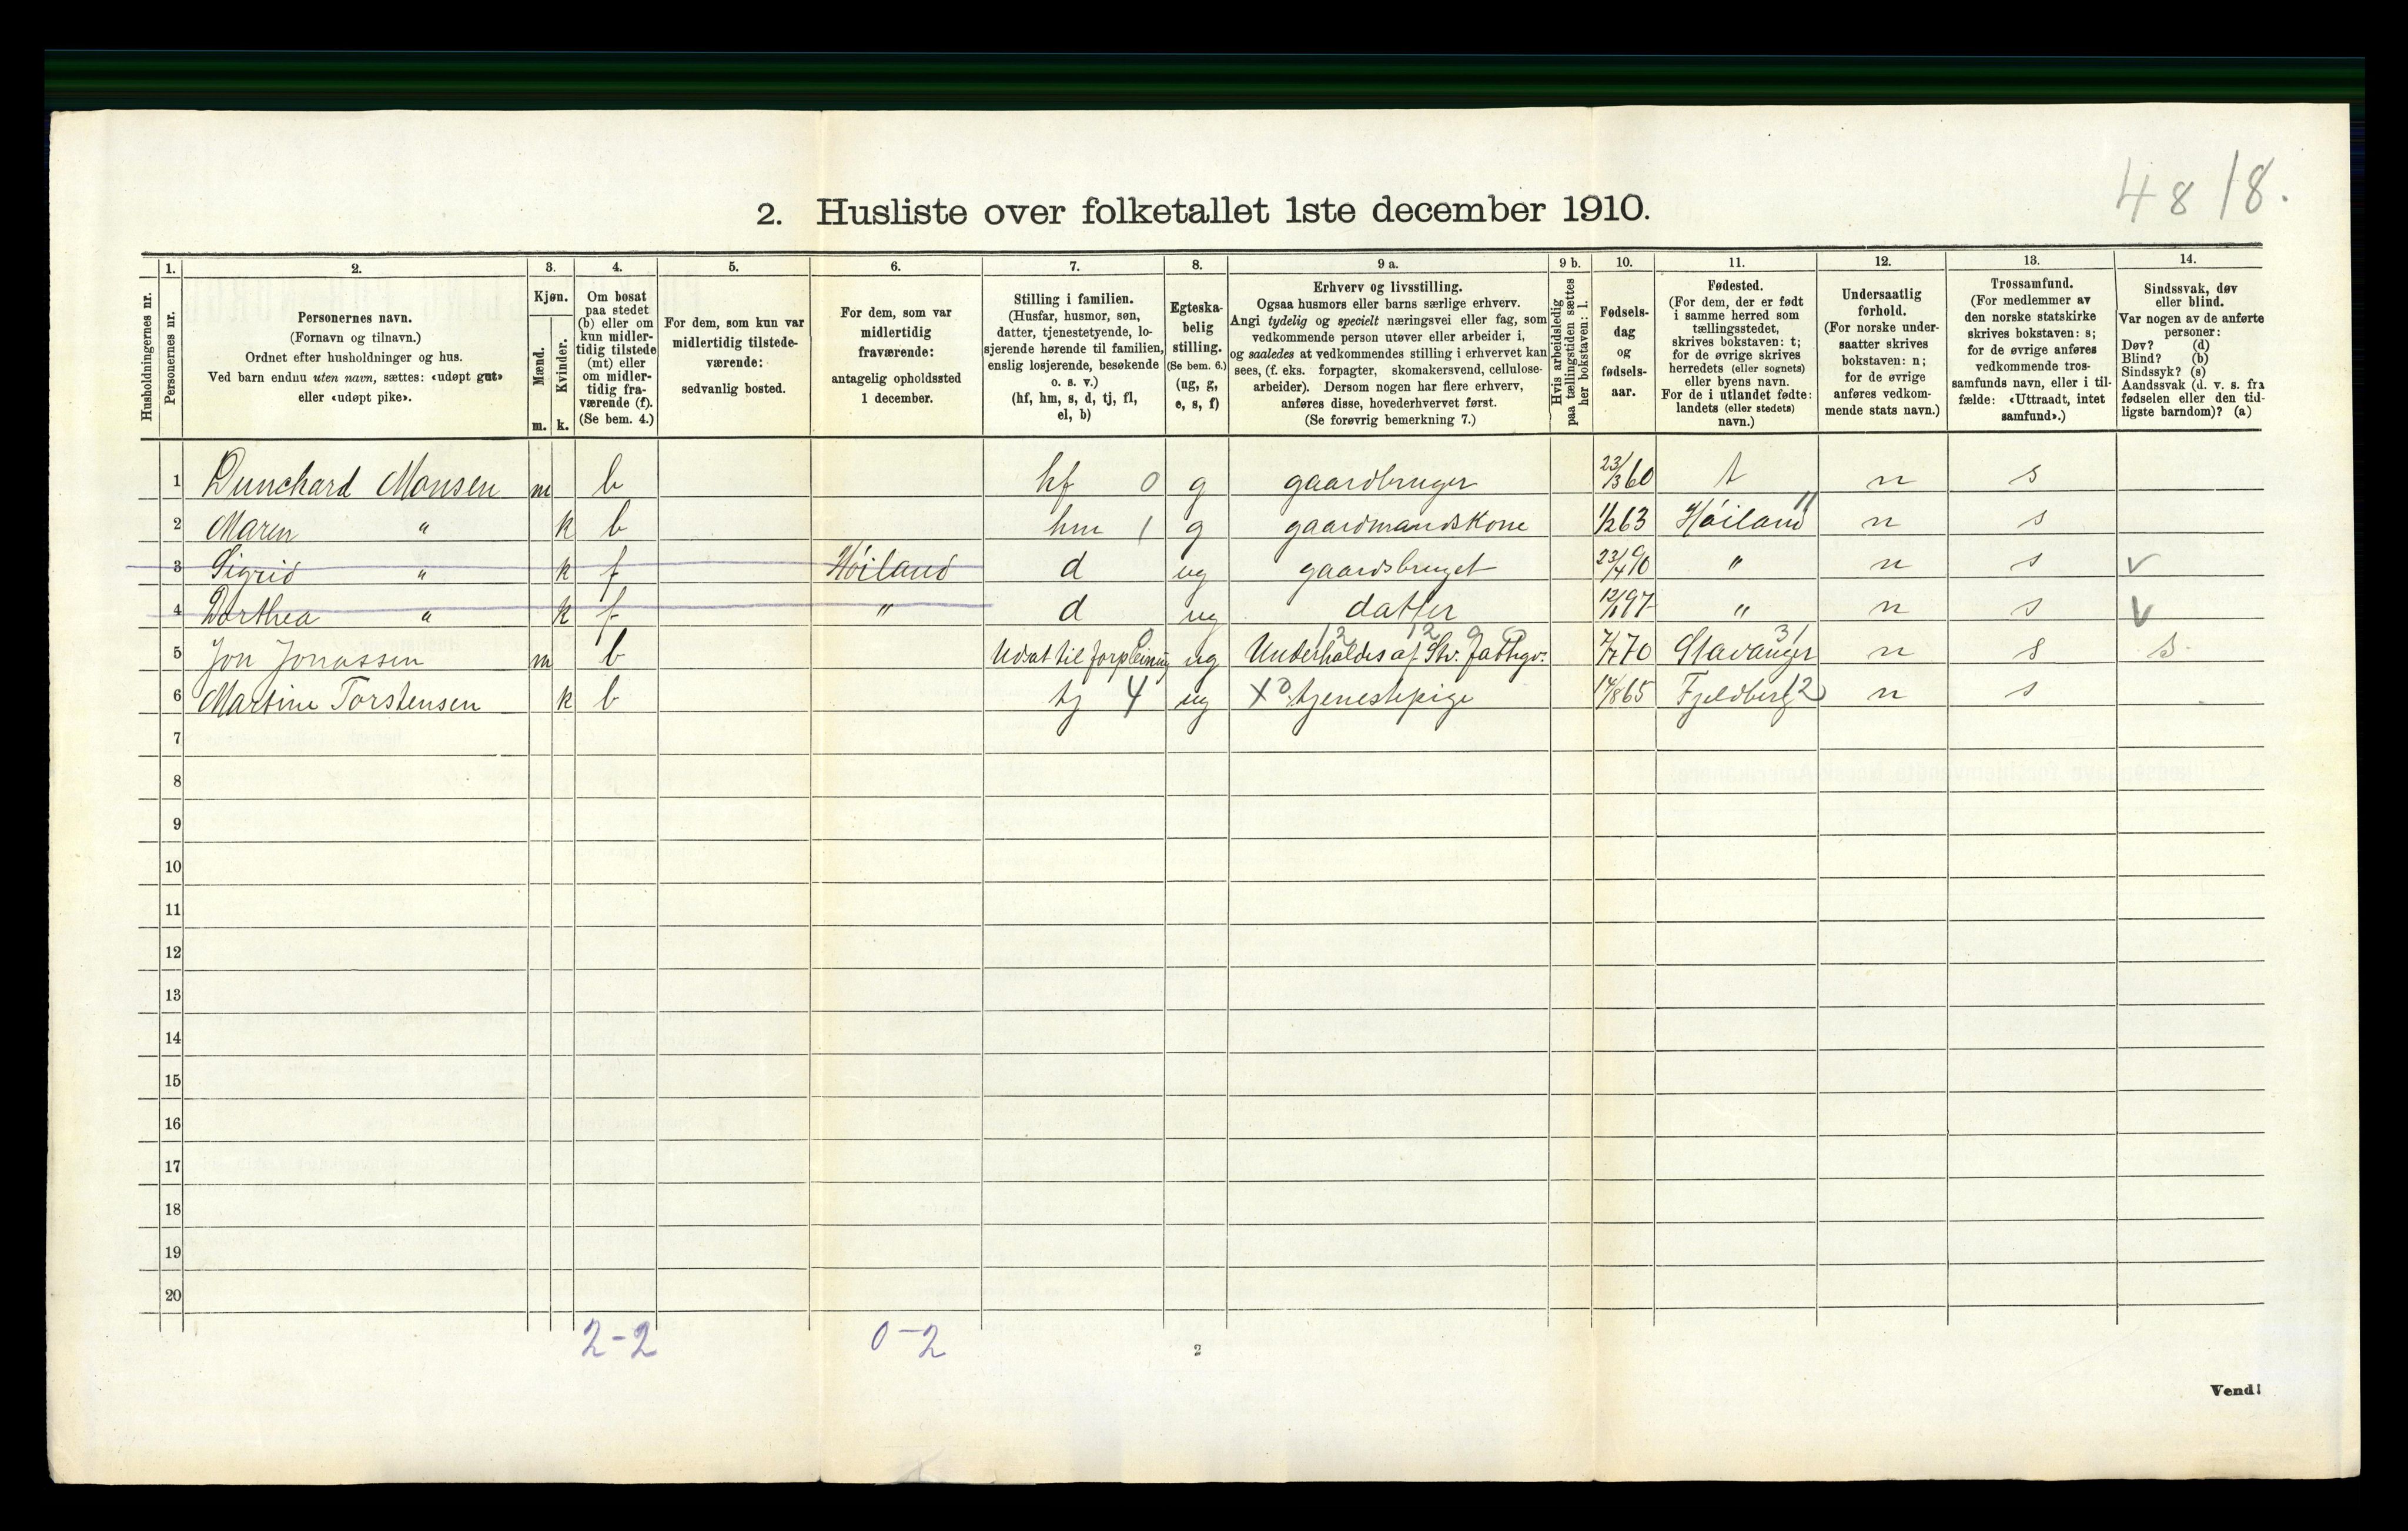 48 18.
2. Husliste over folketallet 1ste december 1910.
Husholdningernes nr.
1. Personernes nr.
2. Personernes navn. (Fornavn og tilnavn.) Ordnet efter husholdninger og hus. Ved barn endnu uten navn, sættes: «udøpt gut» eller «udøpt pike».
3. Kjøn. Mænd. m. Kvinder. k.
4. Om bosat paa stedet (b) eller om kun midlertidig tilstede (mt) eller om midlertidig fraværende (f). (Se bem. 4.)
5. For dem, som kun var midlertidig tilstedeværende: sedvanlig bosted.
6. For dem, som var midlertidig fraværende: antagelig opholdssted 1 december.
7. Stilling i familien. (Husfar, husmor, søn, datter, tjenestetyende, losjerende hørende til familien, enslig losjerende, besøkende o. s. v.) (hf, hm, s, d, tj, fl, el, b)
8. Egteskabelig stilling. (Se bem. 6.) (ug, g, e, s, f)
9 a. Erhverv og livsstilling. Ogsaa husmors eller barns særlige erhverv. Angi tydelig og specielt næringsvei eller fag, som vedkommende person utøver eller arbeider i, og saaledes at vedkommendes stilling i erhvervet kan sees, (f. eks. forpagter, skomakersvend, cellulosearbeider). Dersom nogen har flere erhverv, anføres disse, hovederhvervet først. (Se forøvrig bemerkning 7.)
9 b. Hvis arbeidsledig paa tællingstiden sættes her bokstaven: l.
10. Fødselsdag og fødselsaar.
11. Fødested. (For dem, der er født i samme herred som tællingsstedet, skrives bokstaven: t; for de øvrige skrives herredets (eller sognets) eller byens navn. For de i utlandet fødte: landets (eller stedets) navn.)
12. Undersaatlig forhold. (For norske undersaatter skrives bokstaven: n; for de øvrige anføres vedkommende stats navn.)
13. Trossamfund. (For medlemmer av den norske statskirke skrives bokstaven: s; for de øvrige anføres vedkommende trossamfunds navn, eller i tilfælde: «Uttraadt, intet samfund».)
14. Sindssvak, døv eller blind. Var nogen av de anførte personer: Døv? (d) Blind? (b) Sindssyk? (s) Aandssvak (d. v. s. fra fødselen eller den tidligste barndom)? (a)
1 Dunchard Monsen m b hf 0 g gaardbruger 23/3 60 t n s
2 Maren " k b hm 1 g gaardmandskone 1/2 63 Høiland 11 n s
3 Sigrid " k f Høiland d ug gaardsbruget 23/4 90 " n s v
4 Dorthea " k f " d ug datter 12/1 97 " n s v
5 Jon Jonassen m b Udsat til forpleining ug Underholdes af Stv. Fattigv. 7/7 70 Stavanger 31 n s s.
6 Martine Torstensen k b tj 4 ug X tjenestepige 17/8 65 Fjeldberg 12 n s
7
8
9
10
11
12
13
14
15
16
17
18
19
20
2-2 0-2
2
Vend!